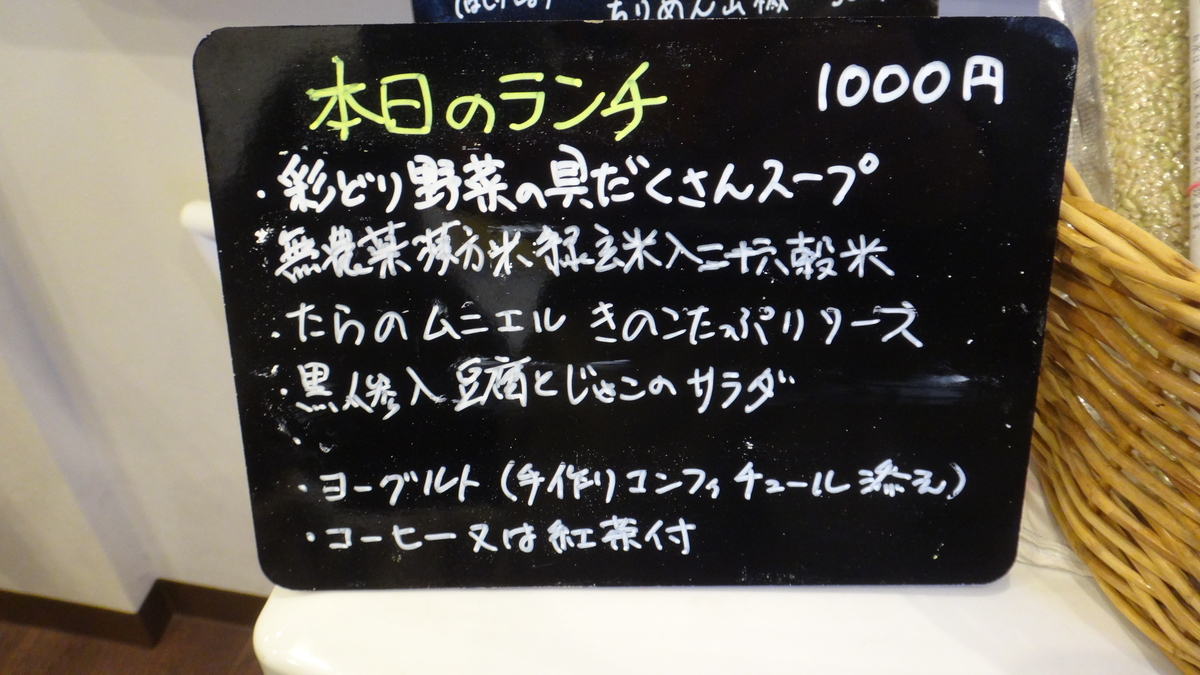 ちりめん山椒
本日のランチ 1000円
・彩どり野菜の具だくさんスープ
・無農薬 米 緑玄米入二十六穀米
・たらのムニエル きのこたっぷりソース
・黒人参入 豆腐とじゃこのサラダ
・ヨーグルト (手作りコンフィチュール添え)
・コーヒー又は紅茶付